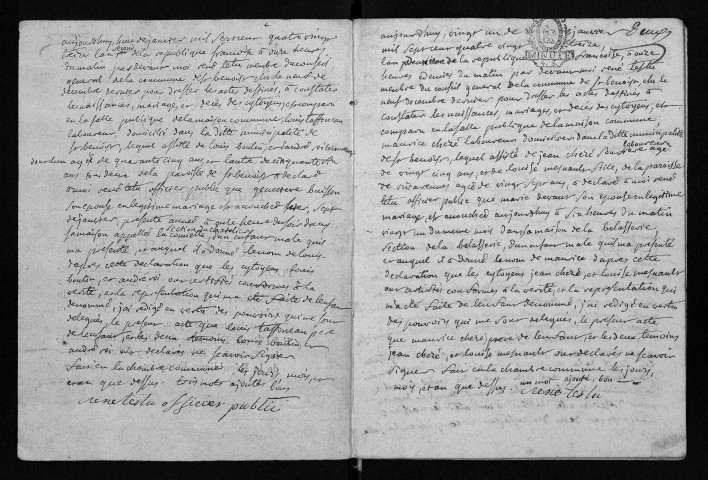 aujourdhuy, huit de janvier mil sept cent quatre vingt
treize lan second de la republique francoise à onze heures
du matin par devant moi rené testu membre du conseil
general de la commune de st benoist elu le neuf de
decembre dernier pour dresser les actes destinés, à constater
les naissances, mariages, et décès des citoyens, est comparu
en la salle publique de la maison commune, louis taffonneau
laboureur domicilié dans la ditte municipalité de
st benoist, lequel assisté de louis boutin, et andré
agé de quarante cinq ans, et lautre de cinquante
ans tous deux de la paroisse de st benoist a declaré
à moi rené testu officier public que genevieve buisson
son epouse en legitime mariage est accouchée hier, sept
de janvier, presente année à heure du soir dans
sa maison appellée la section dun enfant male quil
ma presenté, et auquel il a donné le nom de louis.
dapres cette declaration que les cytoyens, louis
boutin, et andré ont certifiée conforme à la
verité, et la representation qui ma été faite de lenfant
denommé, j'ai rédigé en vertu des pouvoirs qui me sont
delegués, le present acte que louis taffonneau pere
de lenfant, et les deux temoins louis boutin, et
andré ont declarés ne scavoir signer
fait en la chambre commune les jours, mois, et
an que dessus. trois mots ajoutés bons
rené testu officier public
aujourdhuy, vingt un de janvier
mil sept cent quatre vingt treize,
lan deuxieme de la republique francoise, à onze
heures du matin par devant moi rené testu
membre du conseil general de la commune de st benoist, elu le
neuf decembre dernier pour dresser les actes destinés à
constater les naissances, mariages, et décès des cytoyens, est
comparu en la salle publique de la maison commune,
maurice cheré laboureur domicilié dans la ditte municipalité
de st benoist, lequel assisté de jean cheré laboureur agé
de vingt cinq ans, et de louise mesnault fille, de la paroisse
de agée de vingt sept ans, a declaré à moi rené
testu officier public que marie devant son epouse en legitime
mariage, est accouchée aujourdhuy à six heures du matin
vingt un du meme mois dans sa maison de la belasserie,
section de la belasserie, dun enfant male quil ma presenté
et auquel il a donné le nom de maurice. dapres cette
declaration que les cytoyens jean cheré, et louise mesnault
ont certifiée conforme à la verité, et la representation qui
ma été faite de lenfant denommé, j'ai rédigé en vertu
des pouvoirs qui me sont delegués, le present acte
que maurice cheré pere de lenfant, et les deux temoins
jean cheré, et louise mesnault ont declarés ne scavoir
signer fait en la chambre commune les jours,
mois, et an que dessus. un mot ajouté, bon
rené testu